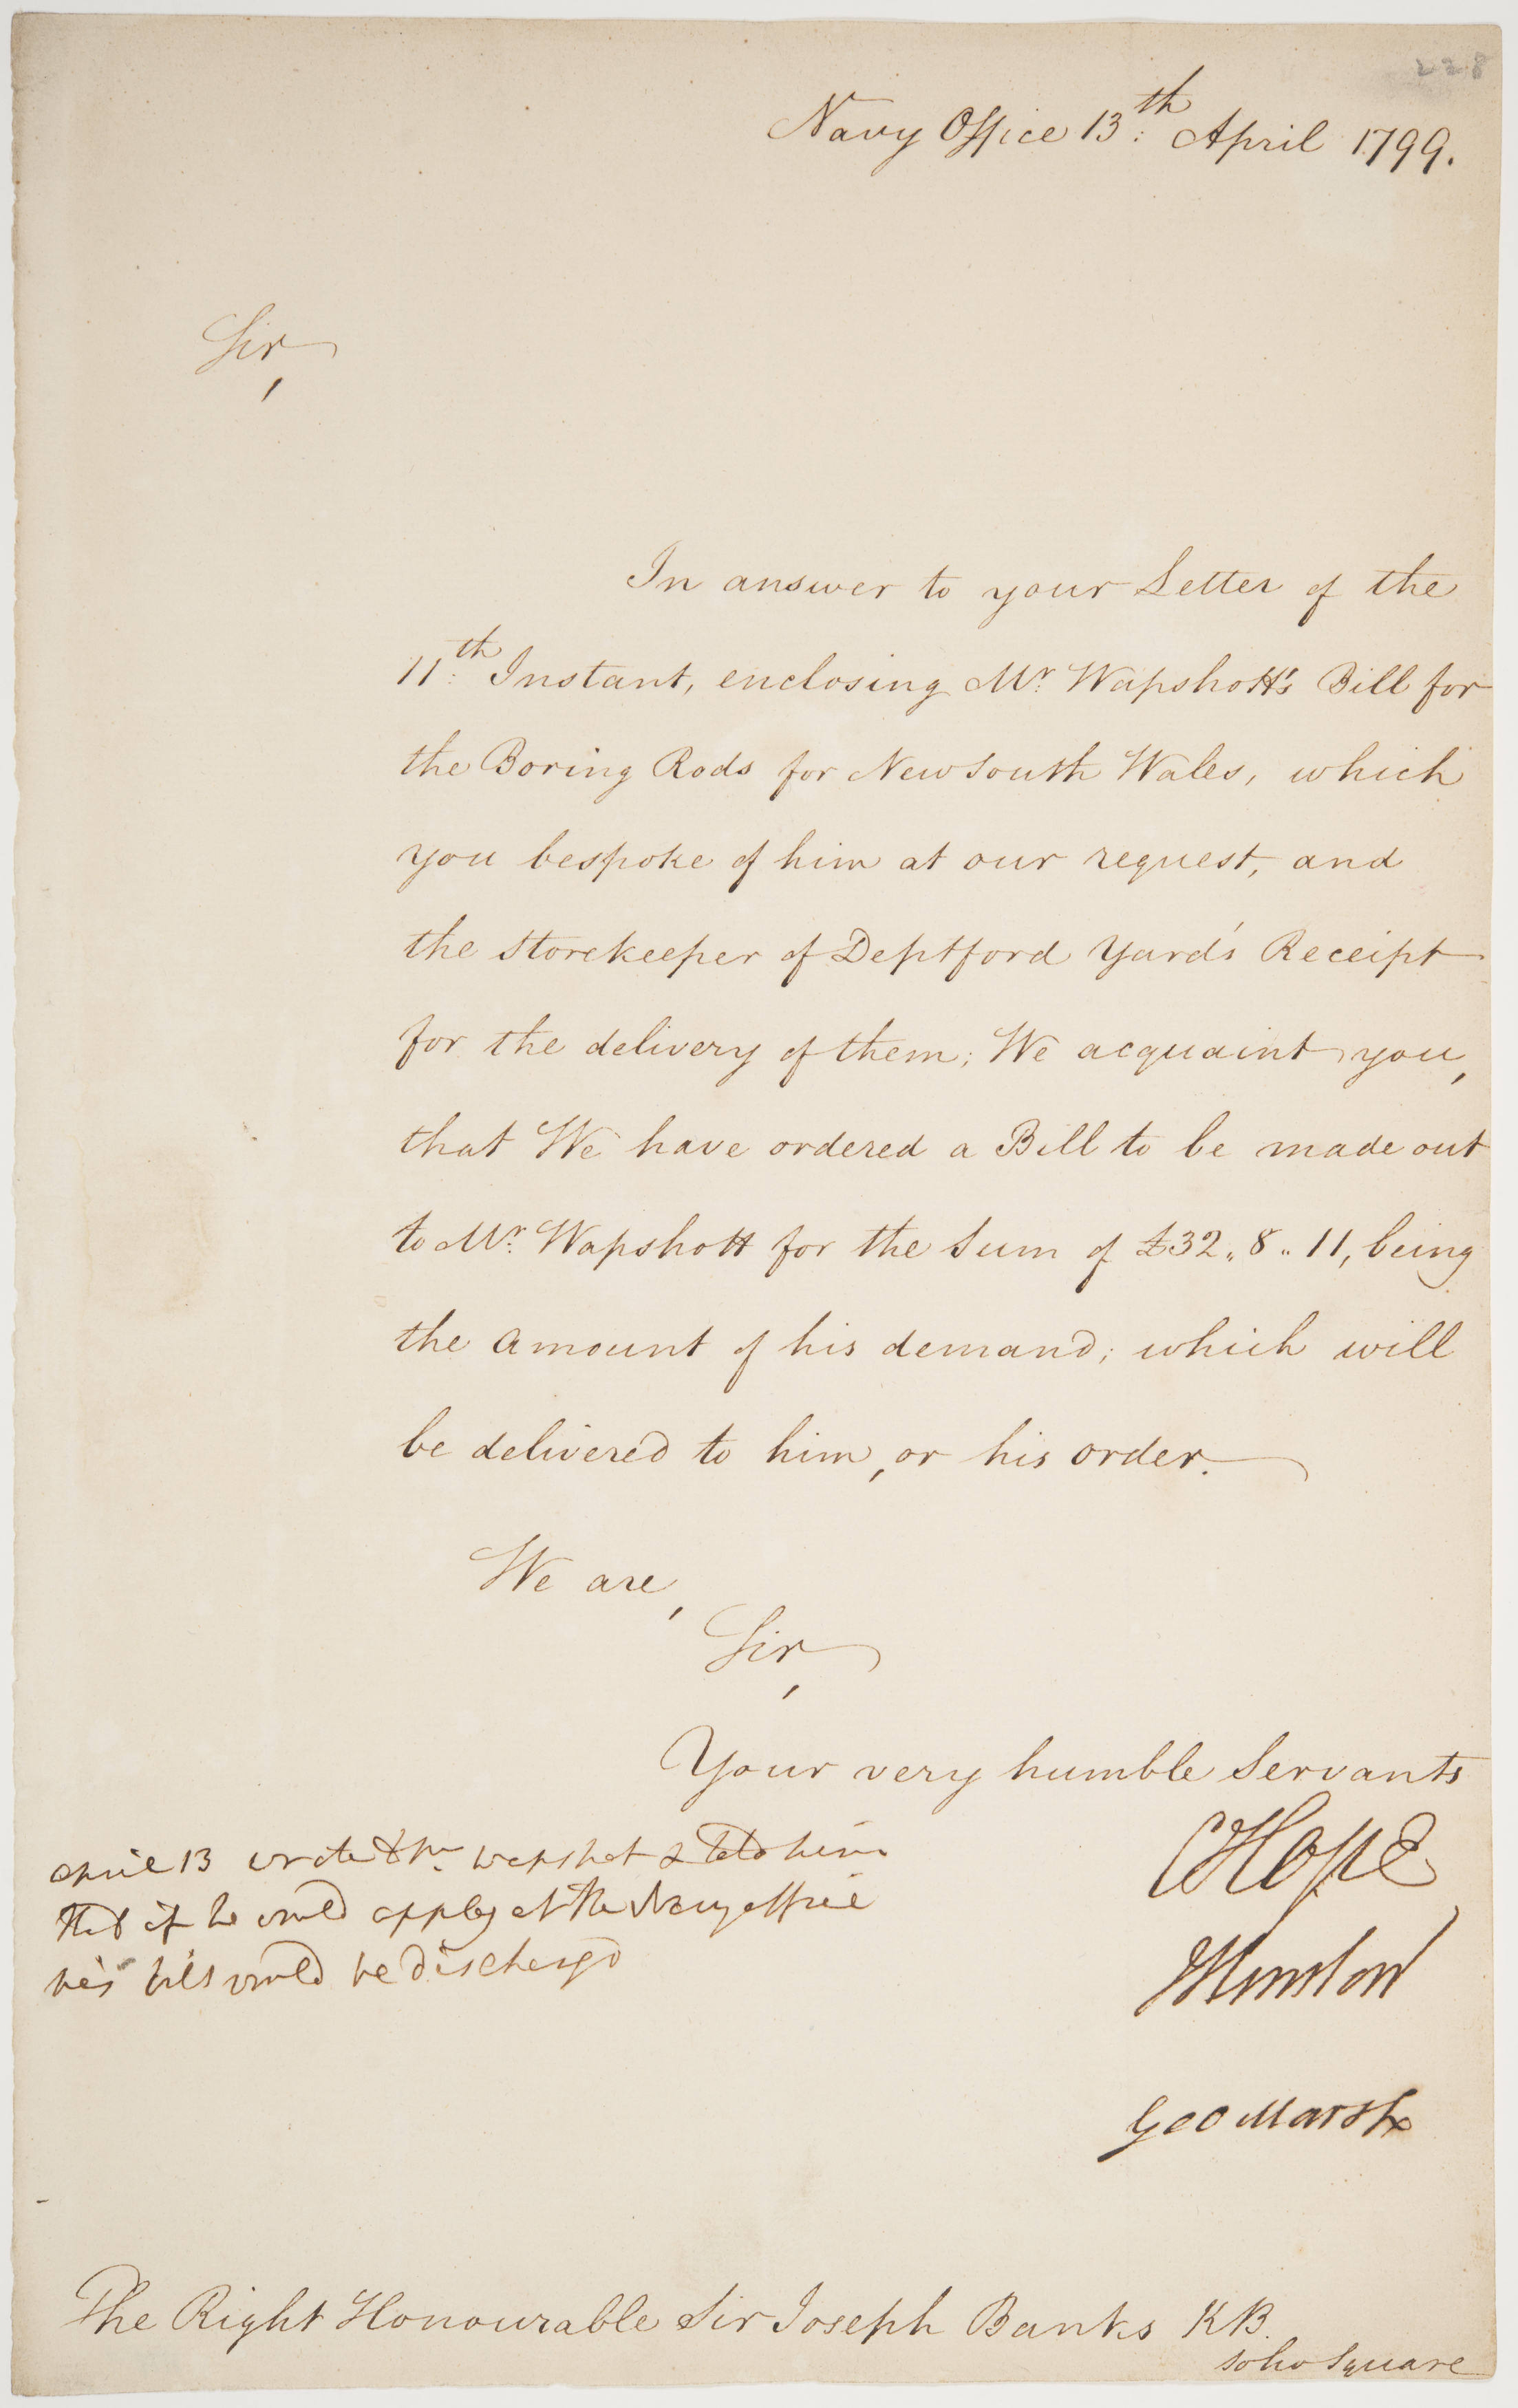 228
Navy Office 13:th April 1799.
Sir,
In answer to your Letter of the
11:th Instant, enclosing Mr. Wapshott's Bill for
the Boring Rods for New South Wales, which
you bespoke of him at our request, and
the Storekeeper of Deptford Yard's Receipt
for the delivery of them; We acquaint you,
that We have ordered a Bill to be made out
to Mr. Wapshott for the Sum of £32.. 8.. 11, being
the amount of his demand; which will
be delivered to him, or his order.
We are,
Sir,
Your very humble Servants
CHope
April 13 wrote to Mr. Wapshot & told him
that if he would apply at the Navy office
his bill would be dischargd
Geo Marsh
The Right Honourable Sir Joseph Banks KB.
Soho Square